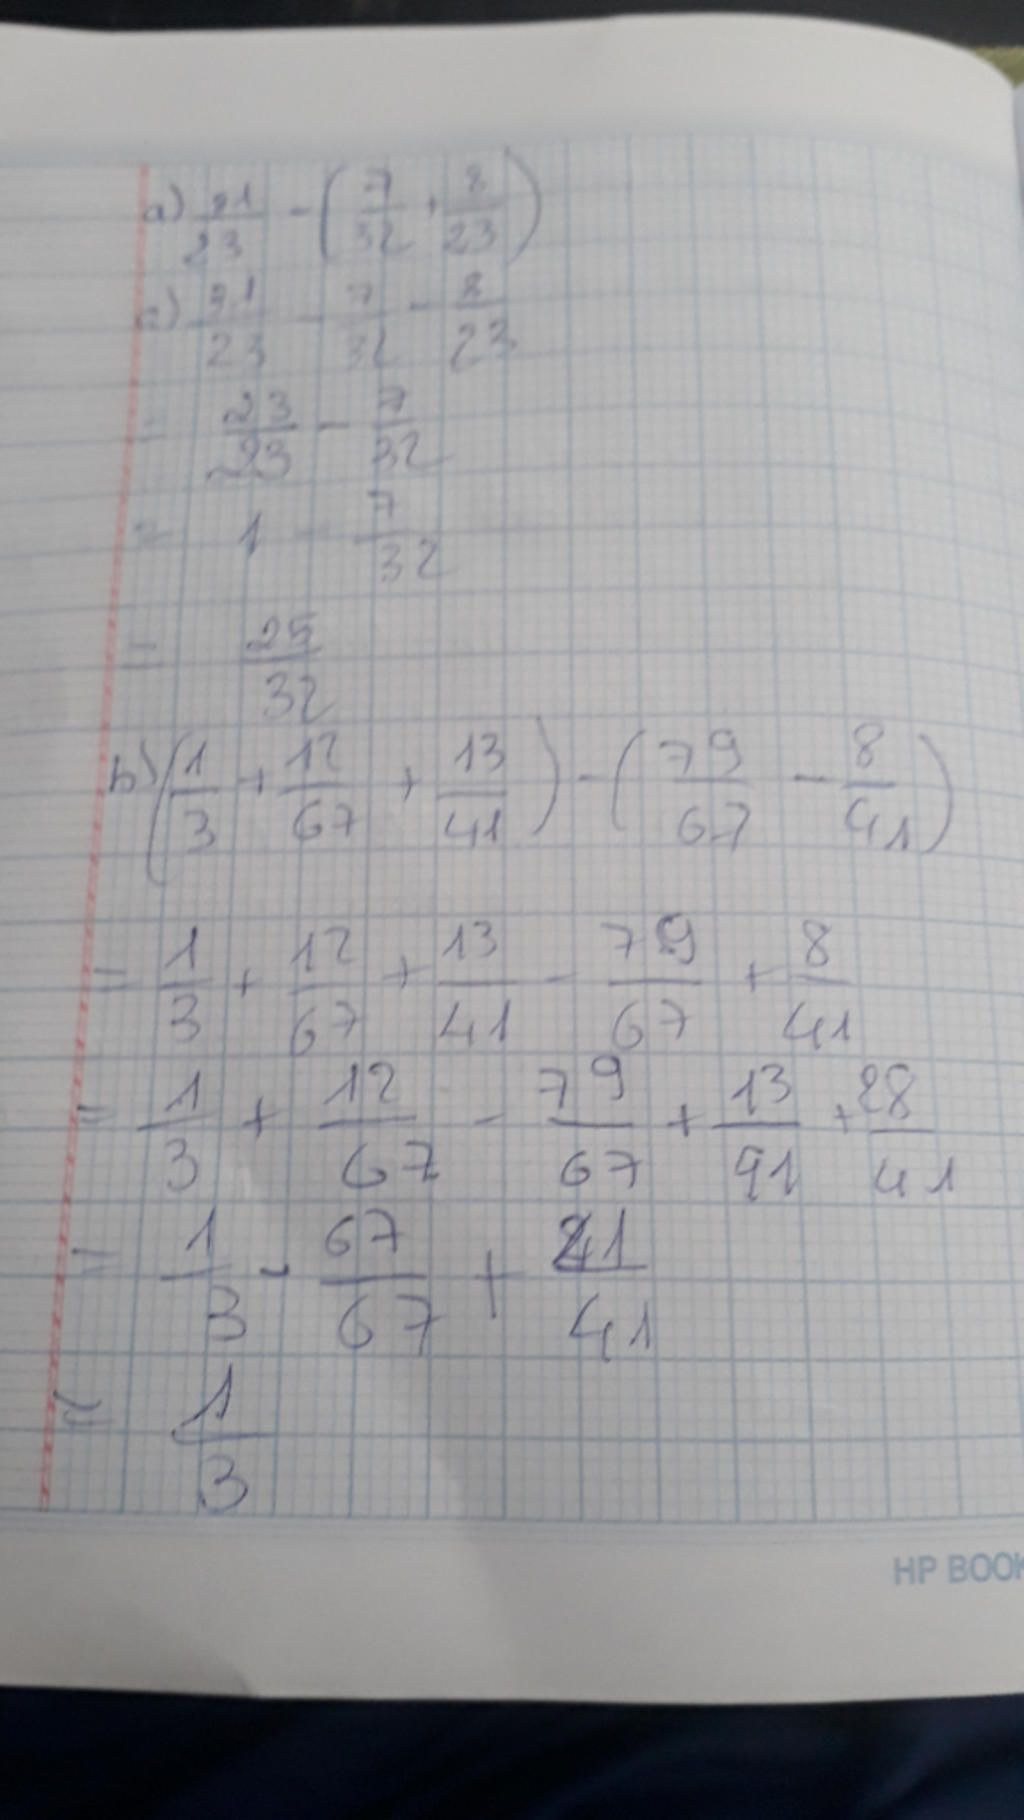 a) 31/23 - (7/32 + 8/23)
=) 31/23 - 7/32 - 8/23
= 23/23 - 7/32
= 1 - 7/32
= 25/32
b) (1/3 + 12/67 + 13/41) - (79/67 - 8/41)
= 1/3 + 12/67 + 13/41 - 79/67 + 8/41
= 1/3 + 12/67 - 79/67 + 13/91 + 28/41
= 1/3 - 67/67 + 41/41
= 1/3
HP BOOK